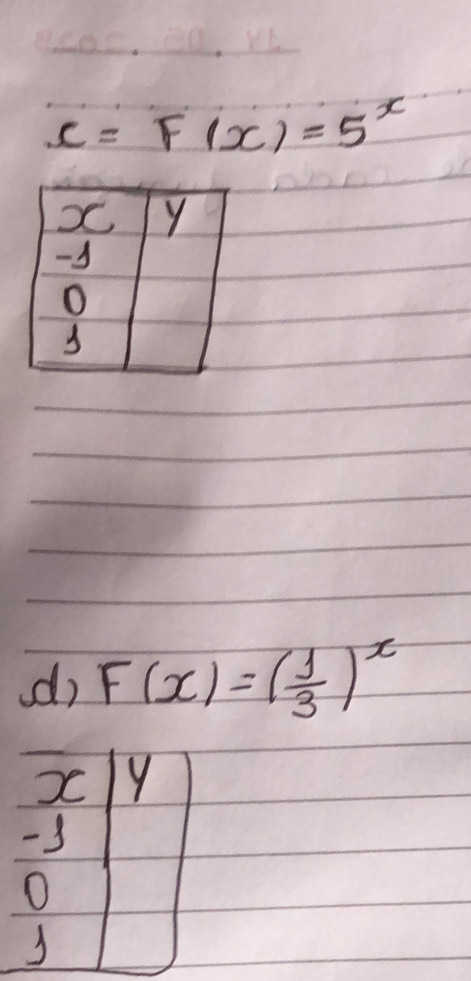 c = F(x) = 5^x
x y
-1
0
1
d) F(x) = (1/3)^x
x y
-1
0
1